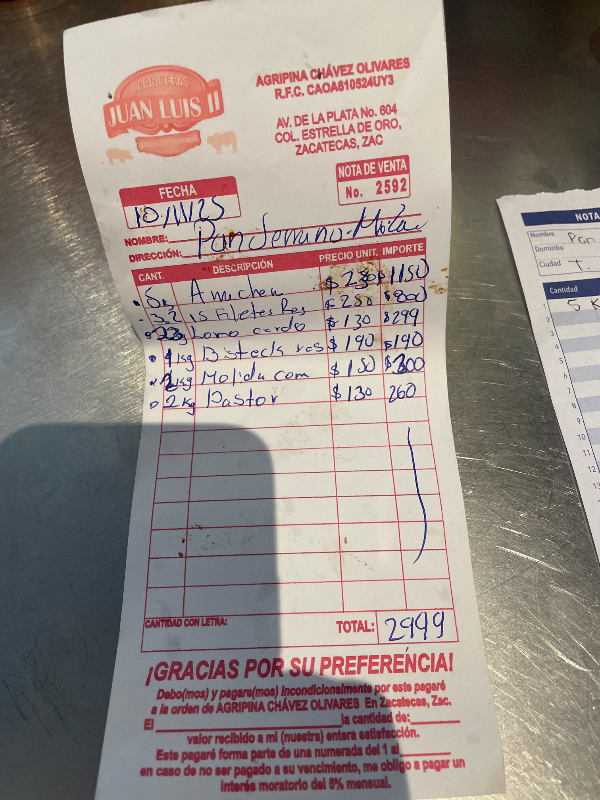 CARNICERÍA
JUAN LUIS II
AGRIPINA CHÁVEZ OLIVARES
R.F.C. CAOA610524UY3
AV. DE LA PLATA No. 604
COL. ESTRELLA DE ORO,
ZACATECAS, ZAC
NOTA DE VENTA
No. 2592
FECHA
10/11/25
NOMBRE:
DIRECCIÓN:
CANT. DESCRIPCIÓN PRECIO UNIT. IMPORTE
$230 $1150
3.2 15 Filetes Res $250 $800
Lomo cerdo $130 $299
1 kg Bisteck res $190 $190
2 kg Molida com $150 $300
2 kg Pastor $130 260
CANTIDAD CON LETRA: TOTAL: 2999
¡GRACIAS POR SU PREFERENCIA!
Debo(mos) y pagare(mos) incondicionalmente por este pagaré
a la orden de AGRIPINA CHÁVEZ OLIVARES En Zacatecas, Zac.
El la cantidad de:
valor recibido a mi (nuestra) entera satisfacción.
Este pagaré forma parte de una numerada del 1 al
en caso de no ser pagado a su vencimiento, me obligo a pagar un
interés moratorio del 5% mensual.
NOTA
Nombre Pan
Domicilio
Ciudad T.
Cantidad
1 5 K
2
3
4
5
6
7
8
9
10
11
12
13